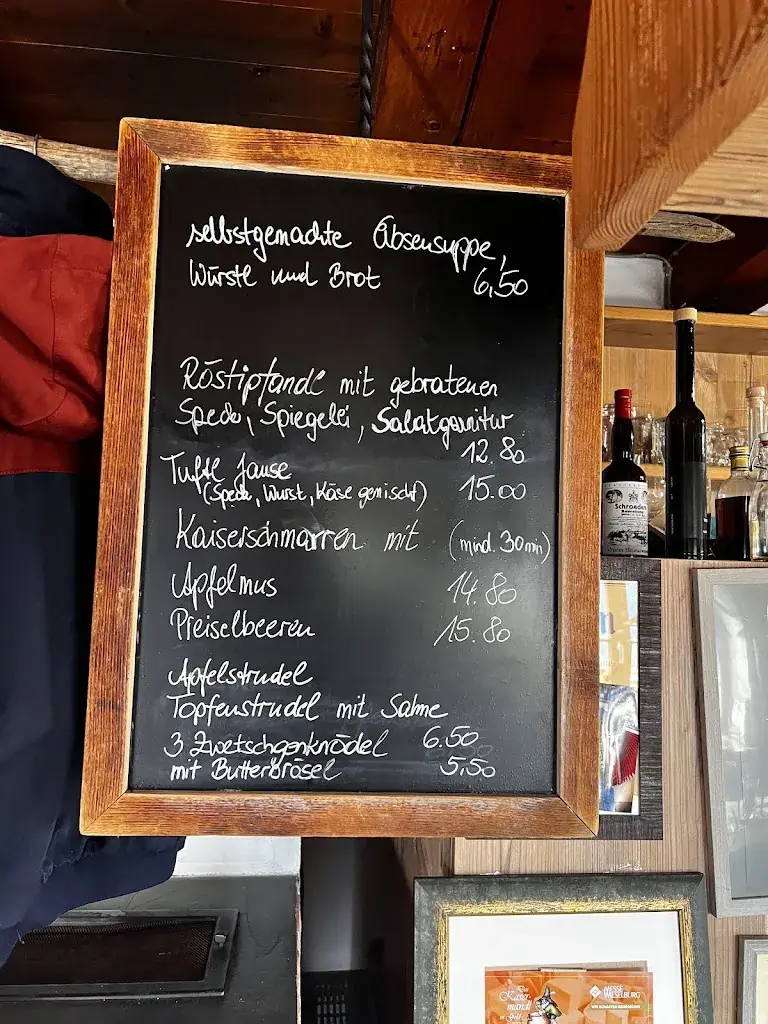 selbstgemachte Erbsensuppe,
Würstl und Brot 6,50
Röstipfandl mit gebratenen
Speck, Spiegelei, Salatgarnitur
12.80
Tuftl Jause
(Speck, Wurst, Käse gemischt) 15.00
Kaiserschmarren mit (mind. 30 min)
Apfelmus 14.80
Preiselbeeren 15.80
Apfelstrudel
Topfenstrudel mit Sahne
3 Zwetschgenknödel 6.50
mit Butterbrösel 5,50
Schroeder
MESSE
WIESELBURG